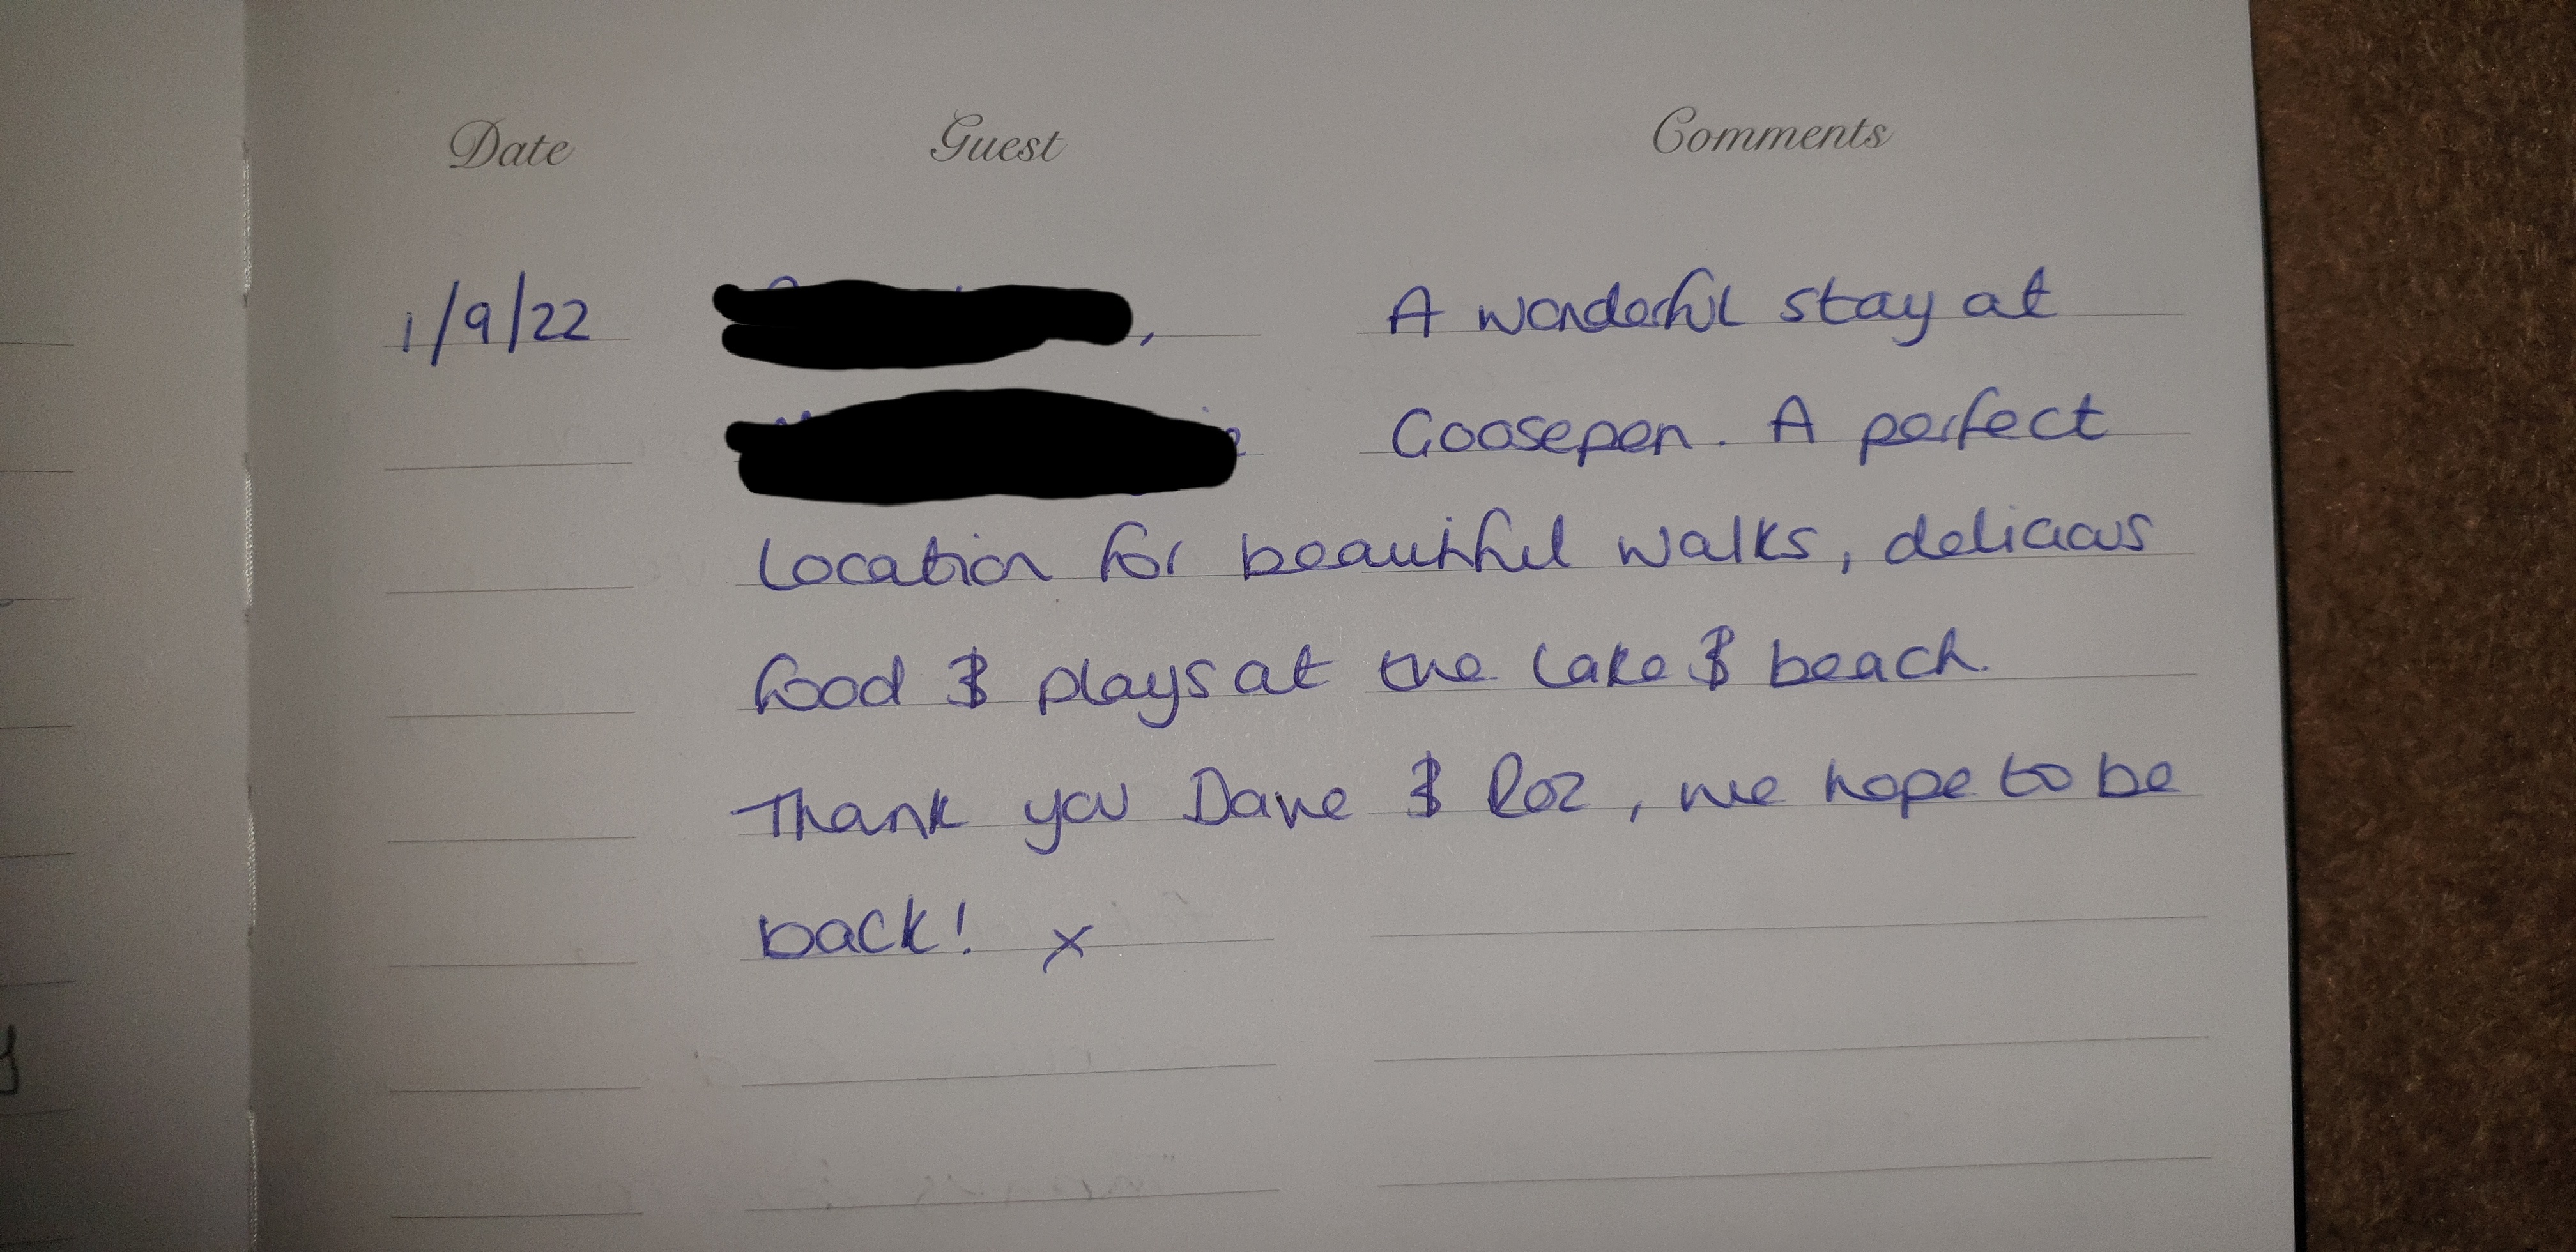 Date Guest Comments
1/9/22 , A wonderful stay at
Goosepen. A perfect
location for beautiful walks, delicious
food & plays at the lake & beach.
Thank you Dave & Roz, we hope to be
back! x